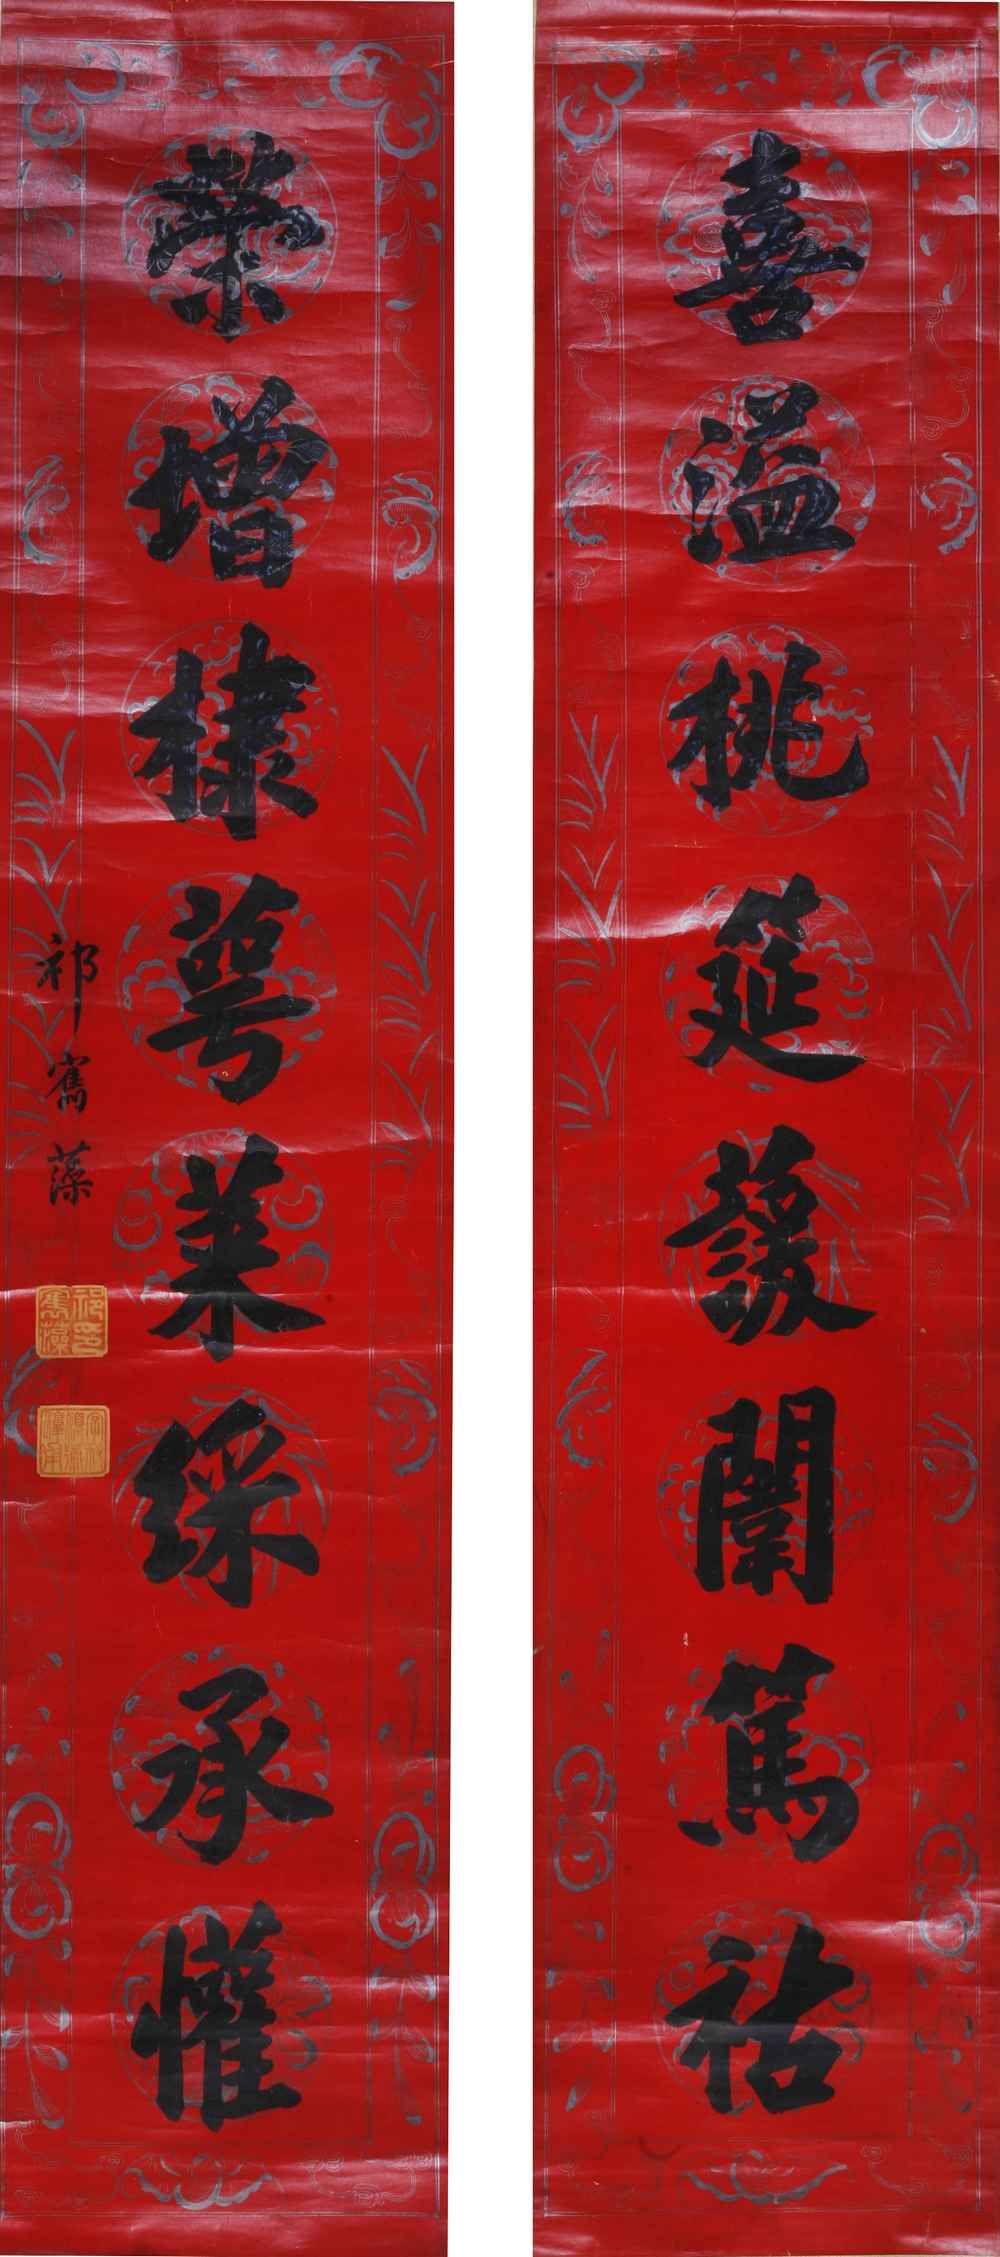 喜溢桃筵蘐闈篤祜
榮增棣萼萊綵承懽
祁寯藻